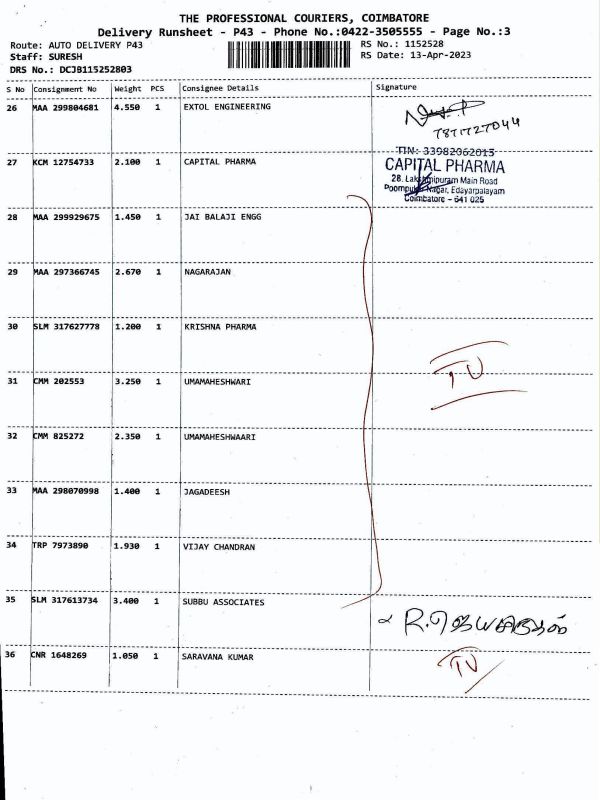 THE PROFESSIONAL COURIERS, COIMBATORE
Delivery Runsheet - P43 - Phone No.:0422-3505555 - Page No.:3
Route: AUTO DELIVERY P43 RS No.: 1152528
Staff: SURESH RS Date: 13-Apr-2023
DRS No.: DCJB115252803
S No Consignment No Weight PCS Consignee Details Signature
26 MAA 299804681 4.550 1 EXTOL ENGINEERING
7871727044
TIN: 33982062015
27 KCM 12754733 2.100 1 CAPITAL PHARMA CAPITAL PHARMA
28, Lakshmipuram Main Road
Nagar, Edayarpalayam
Coimbatore - 641 025
28 MAA 299929675 1.450 1 JAI BALAJI ENGG
29 MAA 297366745 2.670 1 NAGARAJAN
30 SLM 317627778 1.200 1 KRISHNA PHARMA
31 CMM 202553 3.250 1 UMAMAHESHWARI
TU
32 CMM 825272 2.350 1 UMAMAHESHWAARI
33 MAA 298070998 1.400 1 JAGADEESH
34 TRP 7973890 1.930 1 VIJAY CHANDRAN
35 SLM 317613734 3.400 1 SUBBU ASSOCIATES
36 CNR 1648269 1.050 1 SARAVANA KUMAR TU